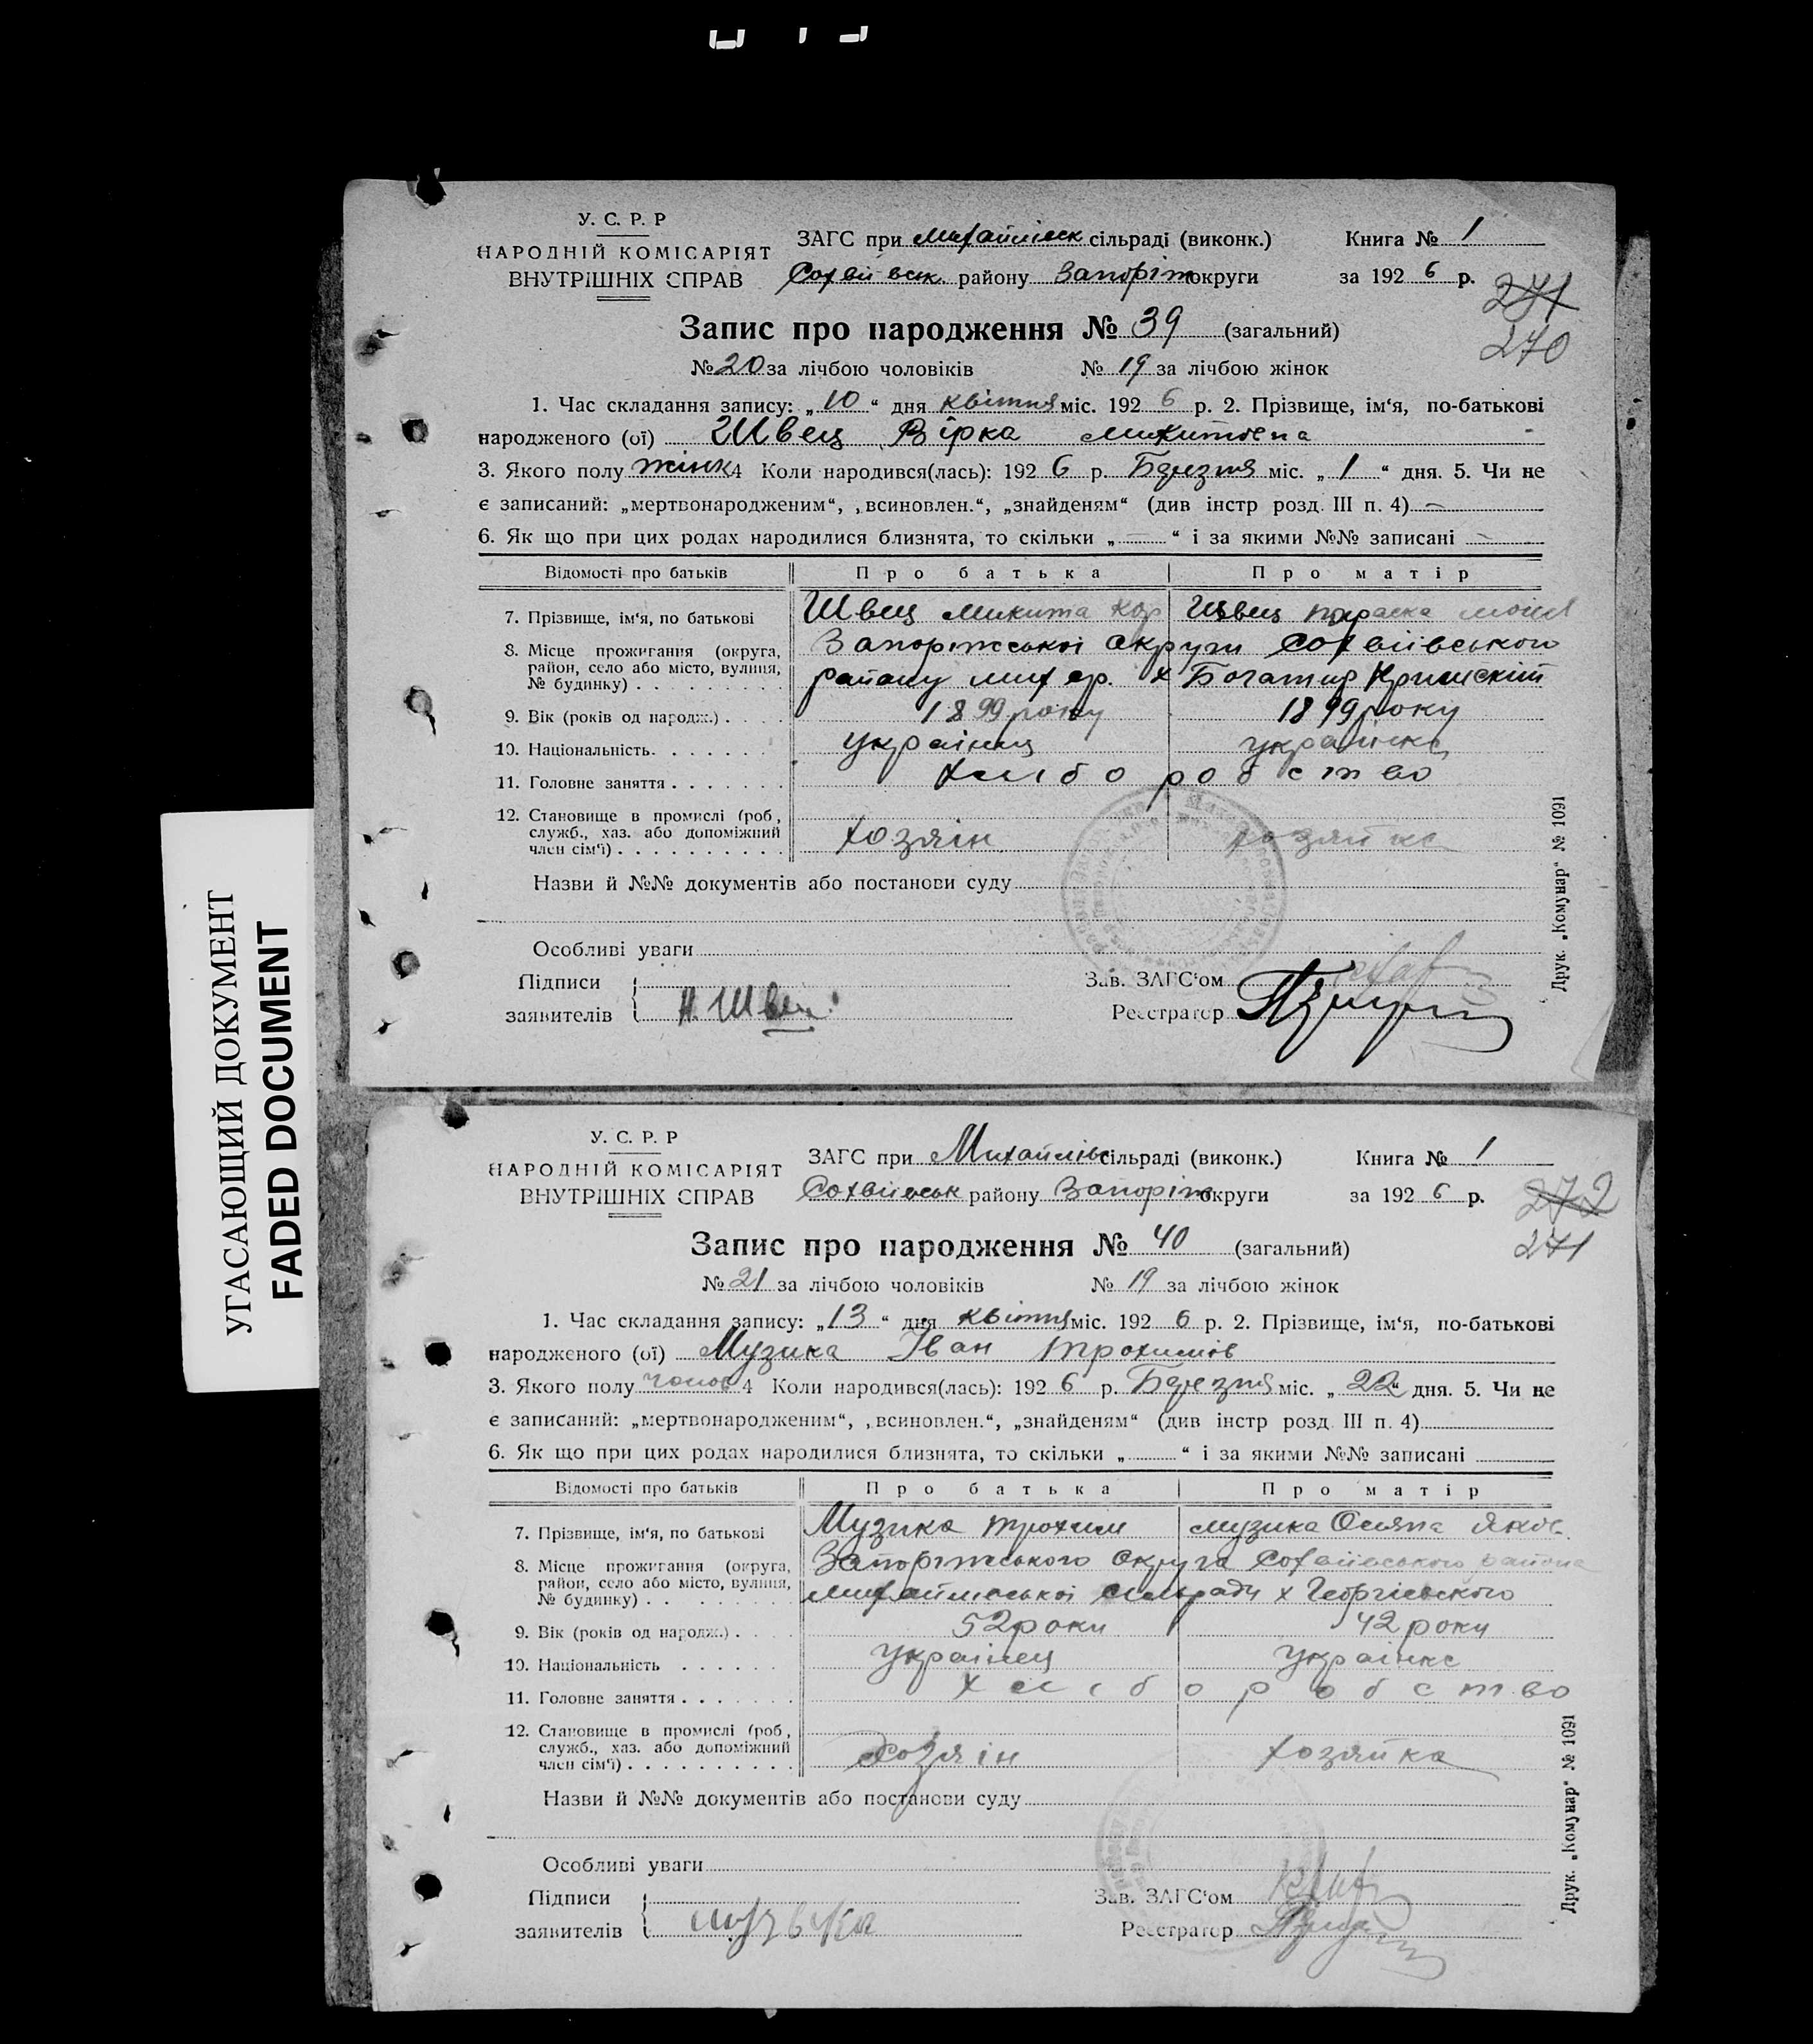 У. С. Р. Р
НАРОДНІЙ КОМІСАРІЯТ
ВНУТРІШНІХ СПРАВ
ЗАГС при Михайлівск сільраді (виконк.) Книга № 1
Софіївськ. району Запоріж округи за 1926 р.
271
270
Запис про народження № 39 (загальний)
№ 20 за лічбою чоловіків № 19 за лічбою жінок
1. Час складання запису: „10“ дня квітня міс. 1926 р. 2. Прізвище, ім‘я, по-батькові
народженого (ої) Швец Вірка Микитовна
3. Якого полу жінк 4 Коли народився(лась): 1926 р. Березня міс. „1“ дня. 5. Чи не
є записаний: „мертвонародженим“, „всиновлен.“, „знайденям“ (див інстр розд. III п. 4) —
6. Як що при цих родах народилися близнята, то скільки „—“ і за якими №№ записані —
Відомості про батьків Про батька Про матір
7. Прізвище, ім‘я, по батькові Швец Микита Кор Швец Параска
8. Місце прожигання (округа, Запоріжської округи Софіївського
район, село або місто, вулиця, району Мих ср. х Богатир
№ будинку)
9. Вік (років од народж.) 1899 року 1899 року
10. Національність українец українка
11. Головне заняття хліборобство
12. Становище в промислі (роб,
служб., хаз. або допоміжний хозяін хозяйка
член сім‘ї)
Назви й №№ документів або постанови суду
Особливі уваги
Підписи Зав. ЗАГС‘ом
заявителів Н. Швец Реєстратор
Друк. „Комунар“ № 1091
УГАСАЮЩИЙ ДОКУМЕНТ
FADED DOCUMENT
У. С. Р. Р
НАРОДНІЙ КОМІСАРІЯТ
ВНУТРІШНІХ СПРАВ
ЗАГС при Михайлівс сільраді (виконк.) Книга № 1
Софіївськ району Запоріж округи за 1926 р.
272
271
Запис про народження № 40 (загальний)
№ 21 за лічбою чоловіків № 19 за лічбою жінок
1. Час складання запису: „13“ дня квітня міс. 1926 р. 2. Прізвище, ім‘я, по-батькові
народженого (ої) Музика Іван Трохимов
3. Якого полу чолов 4 Коли народився(лась): 1926 р. Березня міс. „22“ дня. 5. Чи не
є записаний: „мертвонародженим“, „всиновлен.“, „знайденям“ (див інстр розд. III п. 4)
6. Як що при цих родах народилися близнята, то скільки „ “ і за якими №№ записані
Відомості про батьків Про батька Про матір
7. Прізвище, ім‘я, по батькові Музика Трохим Музика Яков.
8. Місце прожигання (округа, Запоріжського округа Софіївського района
район, село або місто, вулиця, Михайлівської сільради х Георгіевського
№ будинку)
9. Вік (років од народж.) 52 роки 42 роки
10. Національність українец українка
11. Головне заняття хліборобство
12. Становище в промислі (роб,
служб., хаз. або допоміжний хозяін хозяйка
член сім‘ї)
Назви й №№ документів або постанови суду
Особливі уваги
Підписи Зав. ЗАГС‘ом
заявителів Музика Реєстратор
Друк. „Комунар“ № 1091